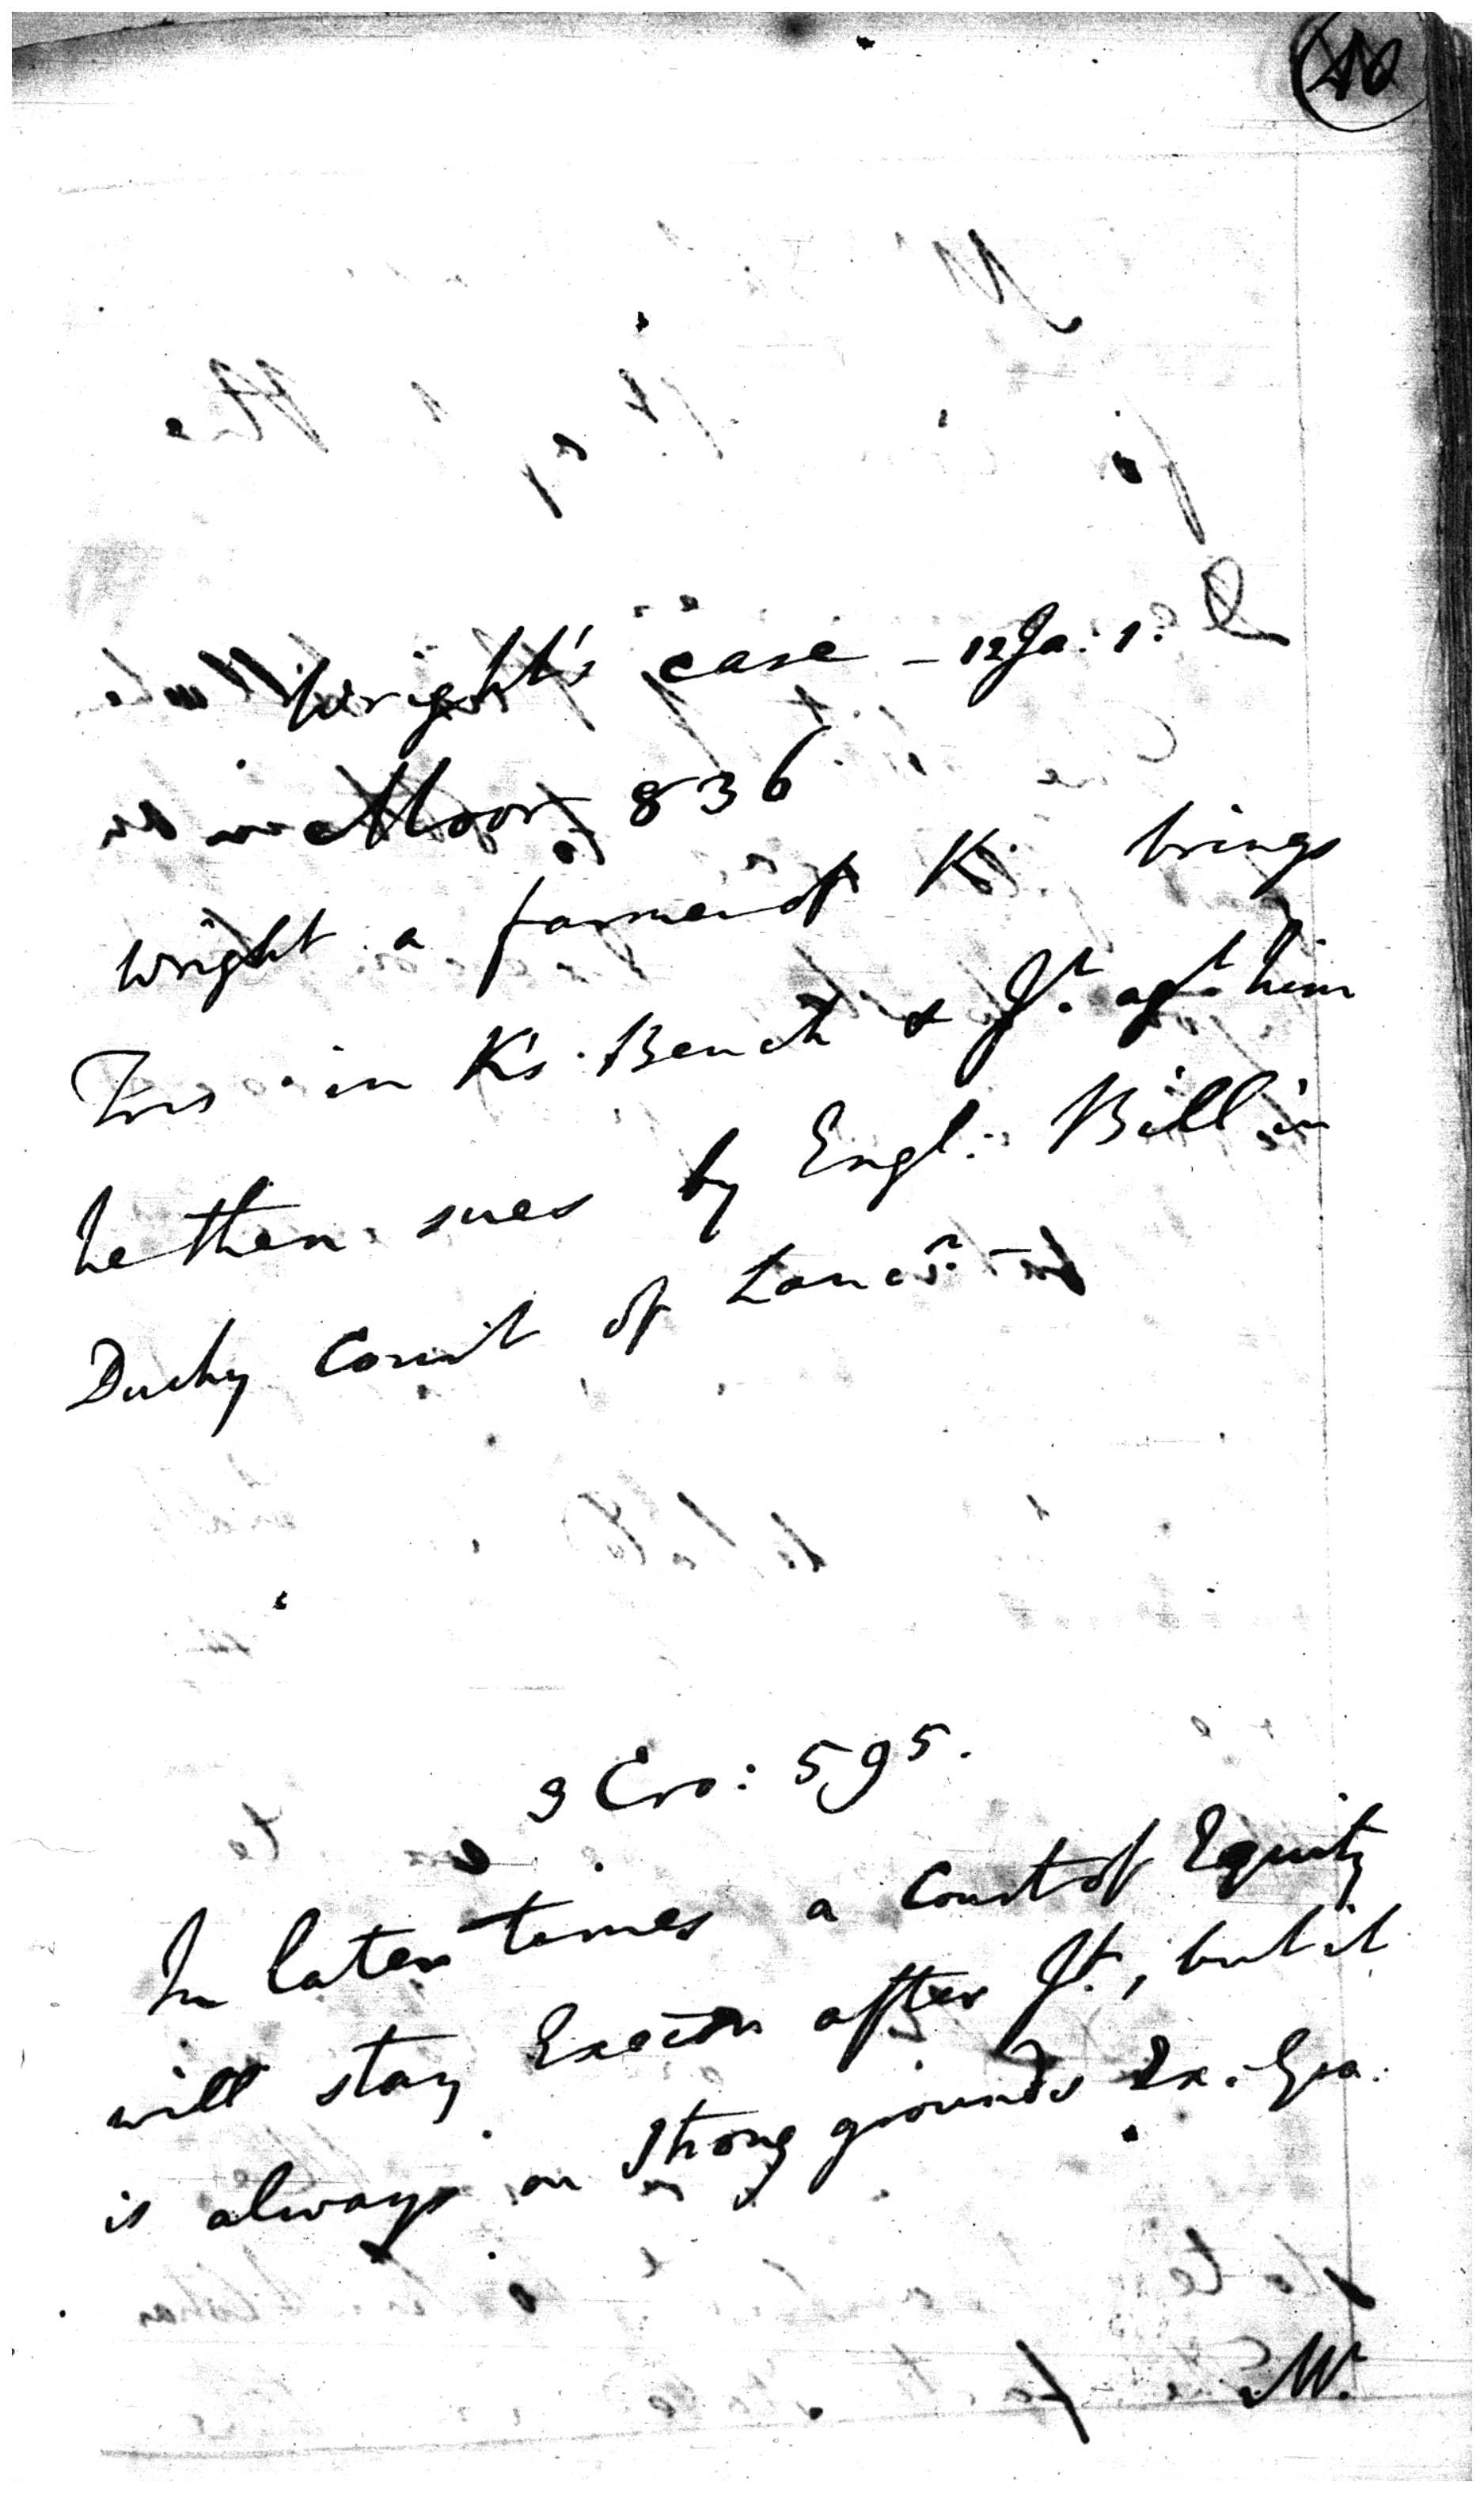 Wright's case - 12 Ja: 1.
Moor 836
Wright a farmer of K. brings
Tres. in K's. Bench & Jt. agt. him
he then sues by Engl: Bill in
Duchy Court of
3 Cro: 595.
In later times a Court of Equity
will stay Execon after Jt., but it
is always on strong grounds Ex. Gra.
W.